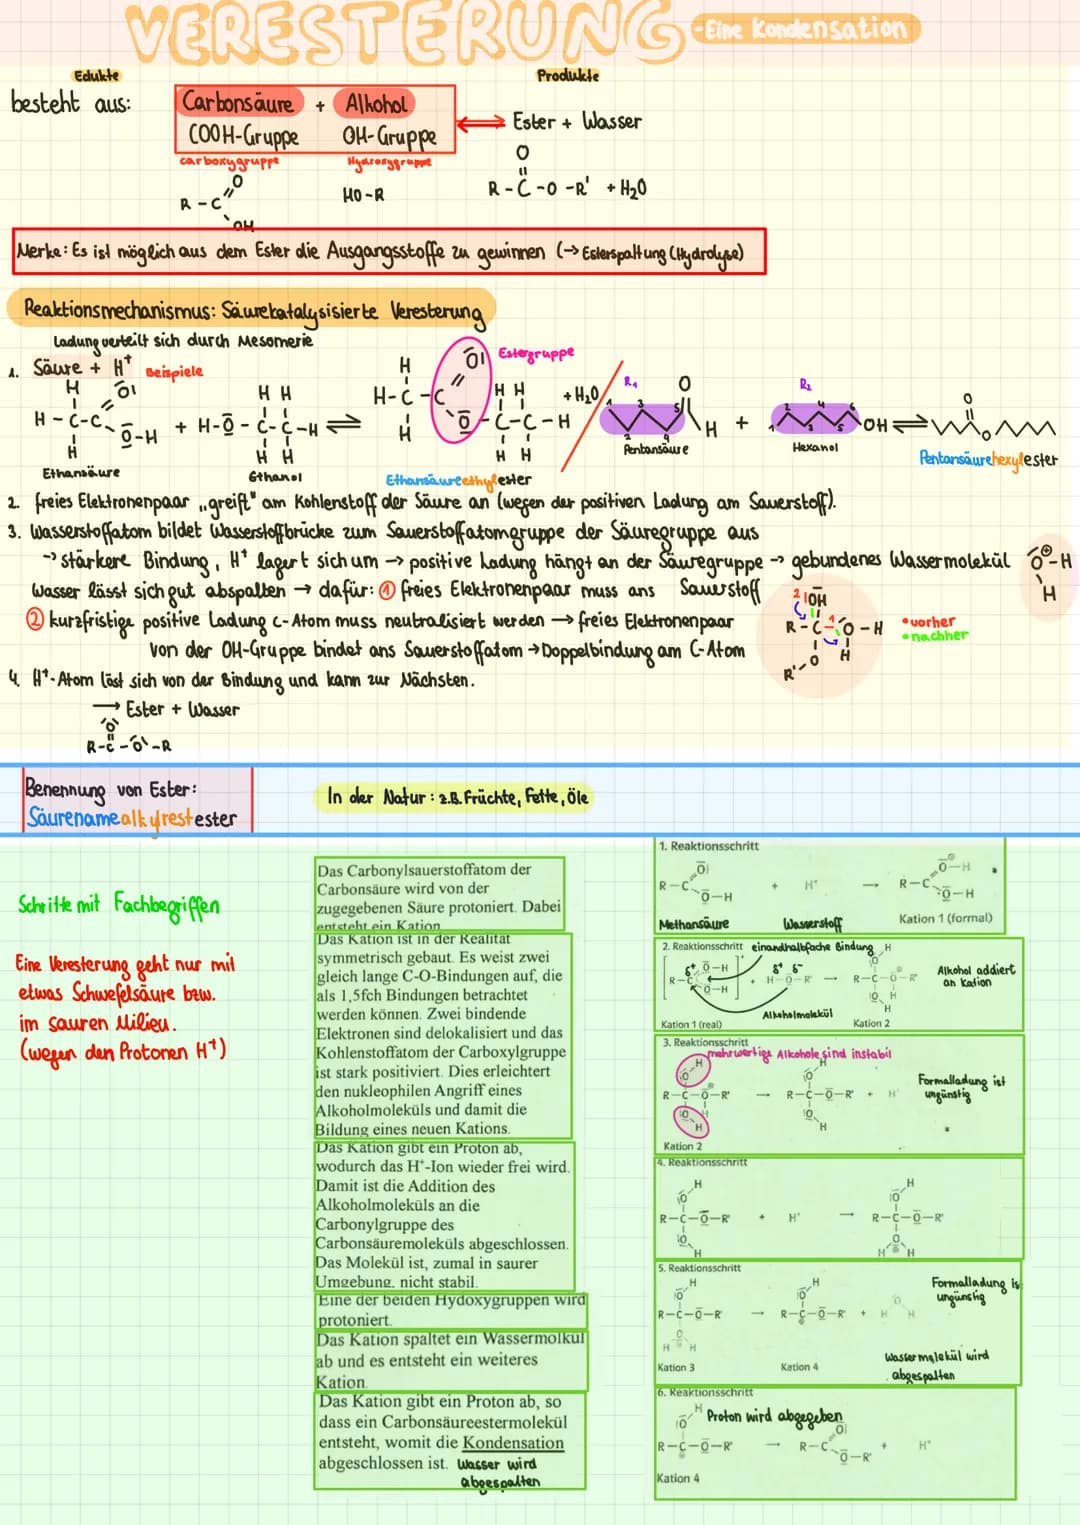 VERESTERUNG -Eine Kondensation
Edukte
Produkte
besteht aus:
Carbonsäure + Alkohol
COOH-Gruppe OH-Gruppe
Ester + Wasser
carboxygruppe Hydroxygruppe
R-C=O OH
HO-R
R-C-O-R' + H₂O
Merke: Es ist möglich aus dem Ester die Ausgangsstoffe zu gewinnen (→ Esterspaltung (Hydrolyse)
Reaktionsmechanismus: Säurekatalysisierte Veresterung
Ladung verteilt sich durch Mesomerie
1. Säure + H⁺ Beispiele
Estergruppe
+ H₂O
Ethansäure
Ethanol
Ethansäureethylester
R₁
Pentansäure
R₂
Hexanol
Pentansäurehexylester
2. freies Elektronenpaar „greift" am Kohlenstoff der Säure an (wegen der positiven Ladung am Sauerstoff).
3. Wasserstoffatom bildet Wasserstoffbrücke zum Sauerstoffatomgruppe der Säuregruppe aus
→ stärkere Bindung, H⁺ lagert sich um → positive Ladung hängt an der Säuregruppe → gebundenes Wassermolekül
Wasser lässt sich gut abspalten → dafür: ① freies Elektronenpaar muss ans Sauerstoff
② kurzfristige positive Ladung C-Atom muss neutralisiert werden → freies Elektronenpaar
von der OH-Gruppe bindet ans Sauerstoffatom → Doppelbindung am C-Atom
• vorher
• nachher
4. H⁺-Atom löst sich von der Bindung und kann zur Nächsten.
→ Ester + Wasser
Benennung von Ester:
Säurenamealkylrestester
In der Natur: z.B. Früchte, Fette, Öle
Schritte mit Fachbegriffen
Eine Veresterung geht nur mit
etwas Schwefelsäure bzw.
im sauren Milieu.
(wegen den Protonen H⁺)
Das Carbonylsauerstoffatom der
Carbonsäure wird von der
zugegebenen Säure protoniert. Dabei
entsteht ein Kation
Das Kation ist in der Realität
symmetrisch gebaut. Es weist zwei
gleich lange C-O-Bindungen auf, die
als 1,5fch Bindungen betrachtet
werden können. Zwei bindende
Elektronen sind delokalisiert und das
Kohlenstoffatom der Carboxylgruppe
ist stark positiviert. Dies erleichtert
den nukleophilen Angriff eines
Alkoholmoleküls und damit die
Bildung eines neuen Kations.
Das Kation gibt ein Proton ab,
wodurch das H⁺-Ion wieder frei wird.
Damit ist die Addition des
Alkoholmoleküls an die
Carbonylgruppe des
Carbonsäuremoleküls abgeschlossen.
Das Molekül ist, zumal in saurer
Umgebung, nicht stabil.
Eine der beiden Hydoxygruppen wird
protoniert.
Das Kation spaltet ein Wassermolkül
ab und es entsteht ein weiteres
Kation.
Das Kation gibt ein Proton ab, so
dass ein Carbonsäureestermolekül
entsteht, womit die Kondensation
abgeschlossen ist. Wasser wird
abgespalten
1. Reaktionsschritt
Methansäure
Wasserstoff
Kation 1 (formal)
2. Reaktionsschritt einandhalbfache Bindung
Alkohol addiert
an Kation
Alkoholmolekül
Kation 1 (real)
Kation 2
3. Reaktionsschritt
mehrwertige Alkohole sind instabil
Formalladung ist
ungünstig
Kation 2
4. Reaktionsschritt
5. Reaktionsschritt
Formalladung is
ungünstig
Wassermolekül wird
abgespalten
Kation 3
Kation 4
6. Reaktionsschritt
Proton wird abgegeben
Kation 4